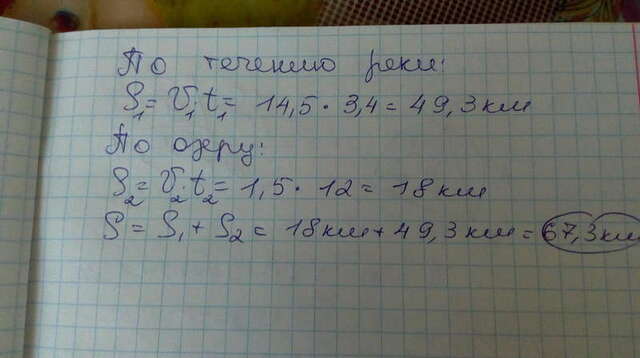 По течению реки:
S₁ = V₁ t₁ = 14,5 · 3,4 = 49,3 км
По озеру:
S₂ = V₂ t₂ = 1,5 · 12 = 18 км
S = S₁ + S₂ = 18 км + 49,3 км = 67,3 км